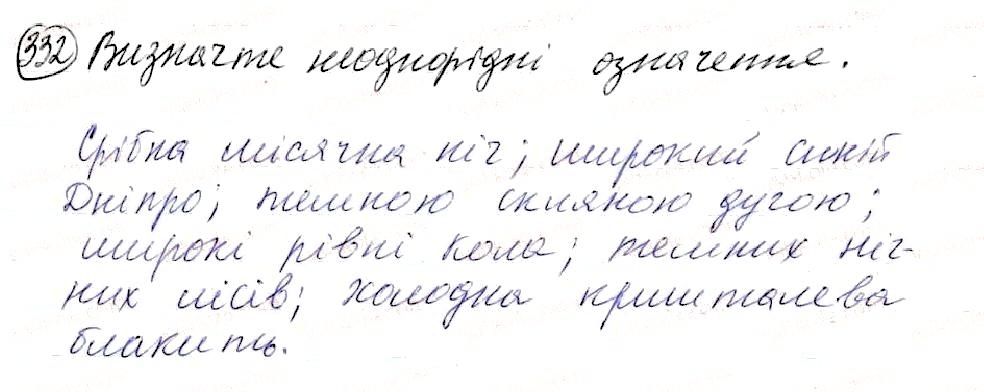 332 Визначте неоднорідні означення.
Срібна місячна ніч; широкий синій
Дніпро; темною скляною дугою;
широкі рівні кола; темних ніч-
них лісів; холодна кришталева
блакить.